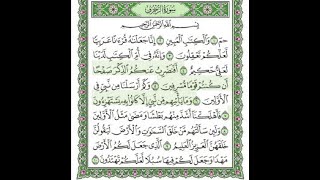 سورة الزخرف
بسم الله الرحمن الرحيم
حم ۝ والكتب المبين ۝ إنا جعلنه قرءنا عربيا
لعلكم تعقلون ۝ وإنه في أم الكتب لدينا
لعلي حكيم ۝ أفنضرب عنكم الذكر صفحا
أن كنتم قوما مسرفين ۝ وكم أرسلنا من نبي في
الأولين ۝ وما يأتيهم من نبي إلا كانوا به يستهزءون ۝
فأهلكنا أشد منهم بطشا ومضى مثل الأولين ۝
ولئن سألتهم من خلق السموت والأرض ليقولن
خلقهن العزيز العليم ۝ الذي جعل لكم الأرض
مهدا وجعل لكم فيها سبلا لعلكم تهتدون ۝